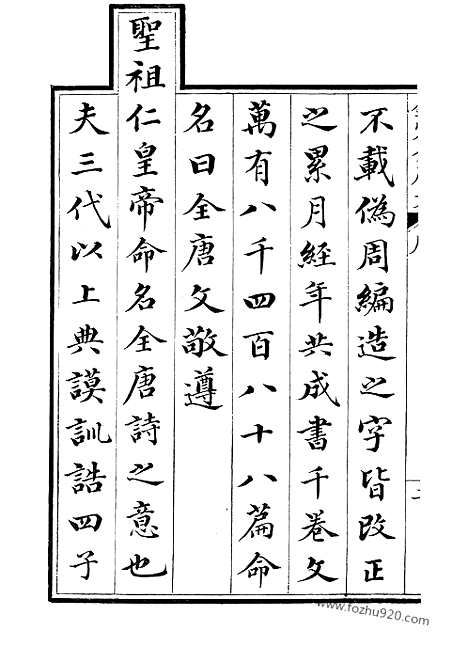 不載偽周編造之字皆改正
之累月經年共成書千卷文
萬有八千四百八十八篇命
名曰全唐文敬遵
聖祖仁皇帝命名全唐詩之意也
夫三代以上典謨訓誥四子
www.fozhu920.com